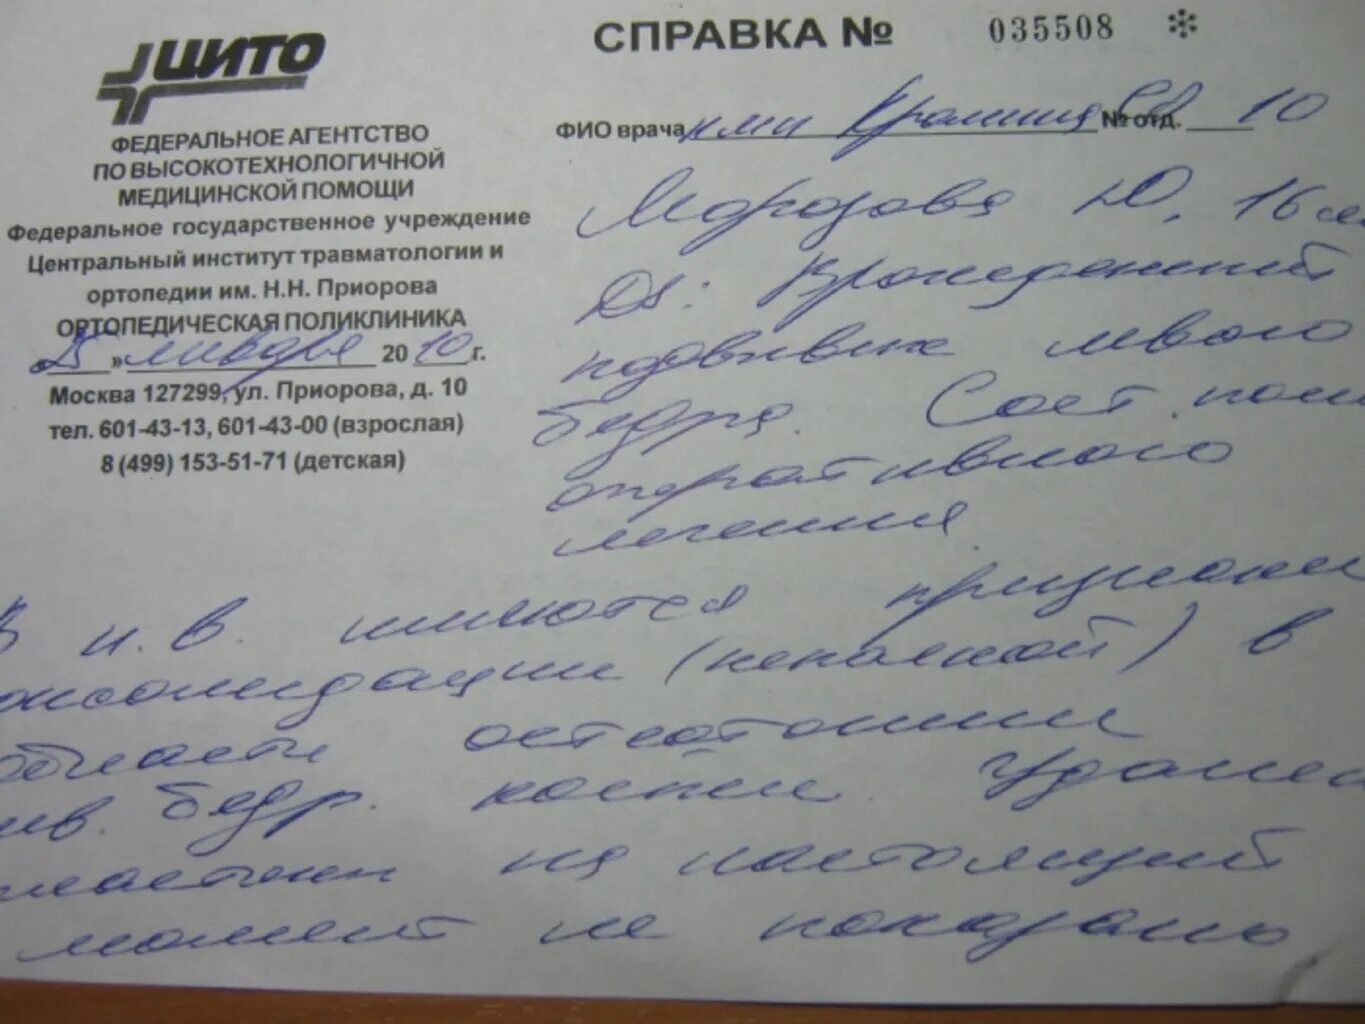 ЦИТО
ФЕДЕРАЛЬНОЕ АГЕНТСТВО
ПО ВЫСОКОТЕХНОЛОГИЧНОЙ
МЕДИЦИНСКОЙ ПОМОЩИ
Федеральное государственное учреждение
Центральный институт травматологии и
ортопедии им. Н.Н. Приорова
ОРТОПЕДИЧЕСКАЯ ПОЛИКЛИНИКА
«25» января 2010 г.
Москва 127299, ул. Приорова, д. 10
тел. 601-43-13, 601-43-00 (взрослая)
8 (499) 153-51-71 (детская)
СПРАВКА № 035508
ФИО врача кмн № отд. 10
Морозова Ю, 16
Ds: Врожденный
подвывих левого
бедра. Сост. посл
оперативного
лечения
В н.в. имеются признаки
консолидации (неполной) в
области остеотомии
лев. бедр. кости. Удален
пластин на настоящий
момент не показано